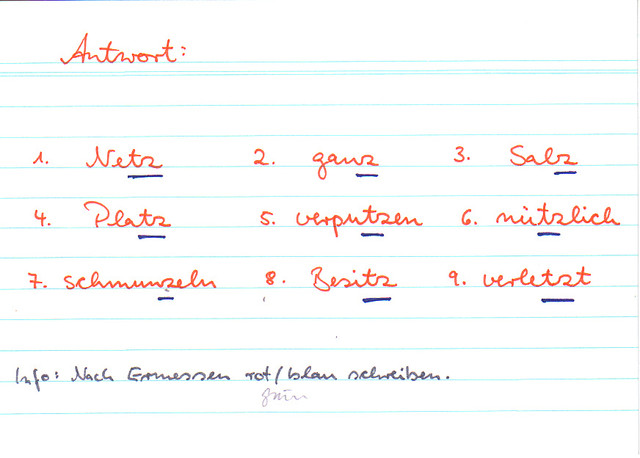 Antwort:
1. Netz 2. ganz 3. Salz
4. Platz 5. verputzen 6. nützlich
7. schmunzeln 8. Besitz 9. verletzt
Info: Nach Ermessen rot/blau schreiben.
grün